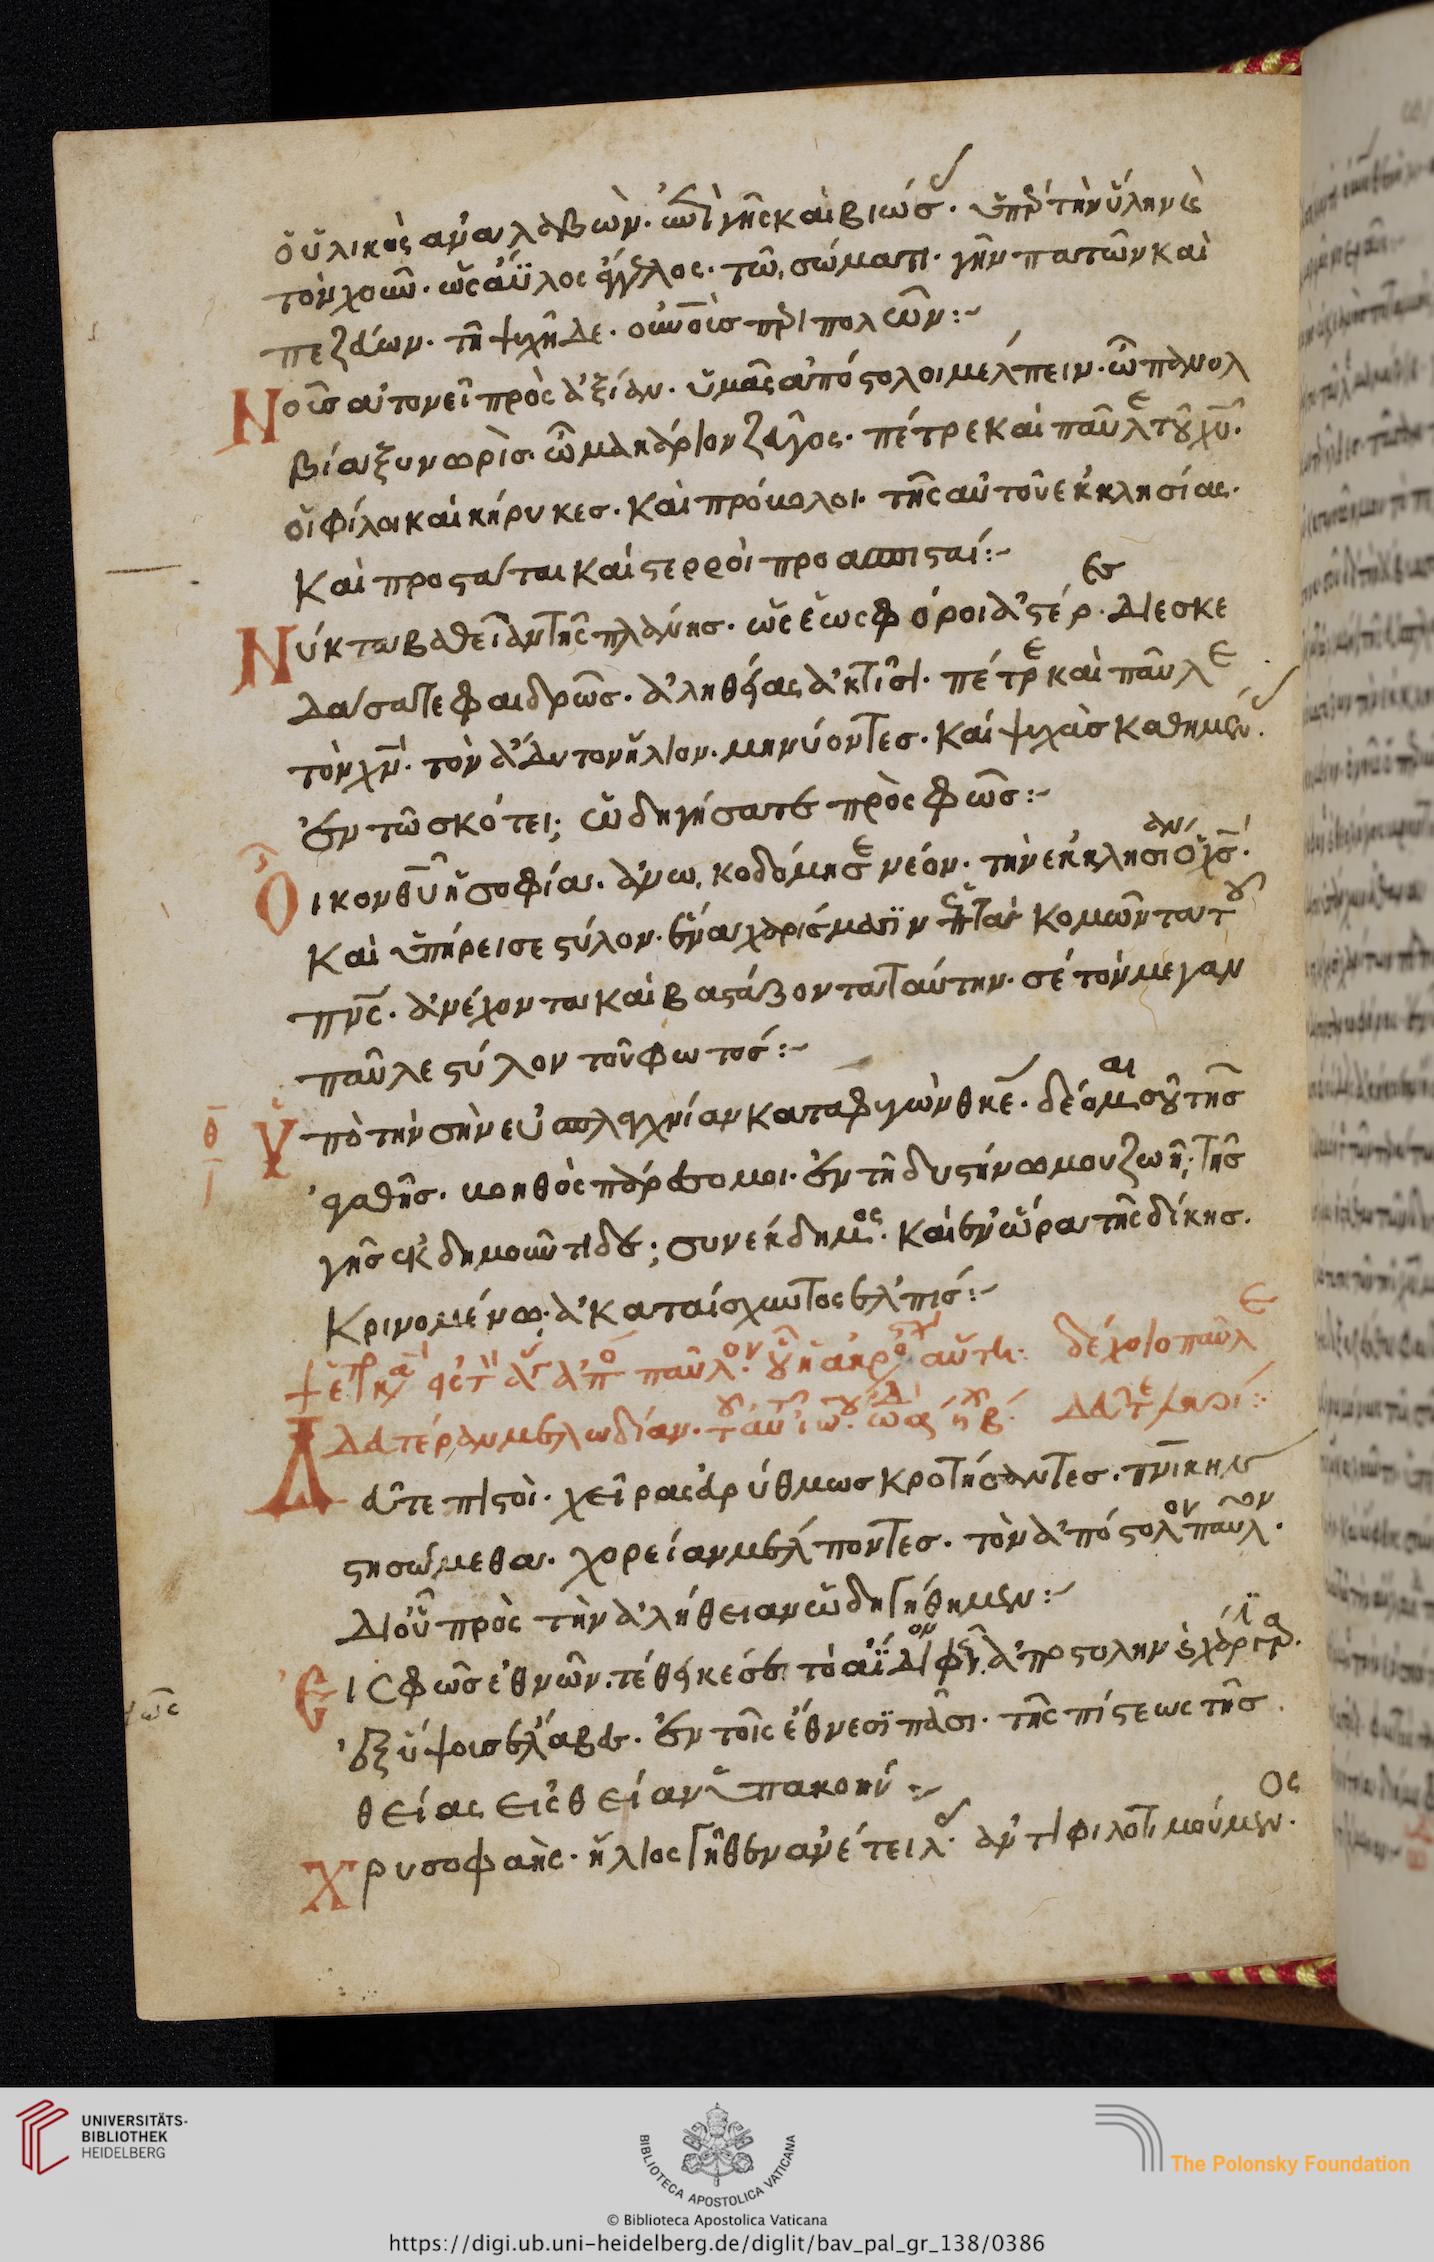 οὐ ὑλικῶς ἀναλαβὼν
τὸν χοῦν· ὡς ἄϋλος ἄγγελος· τῶ σώματι· γῆν πατῶν καὶ
πεζεύων· τῆ ψυχῆ δὲ· οὐνοὺς περιπολῶν:~
Νοῦς ἀτονεῖ πρὸς ἀξίαν· ὑμᾶς ἀπόστολοι μέλπειν· ὦ πανολ
βία ξυνωρὶς· ὦ μακάριον ζεῦγος· πέτρε καὶ παῦλε τοῦ χυ·
οἱ φίλοι καὶ κήρυκες· καὶ πρόμαχοι· τῆς αὐτοῦ ἐκκλησίας·
Καὶ προστάται καὶ στερροὶ προασπισταί:~
Νύκτα βαθεῖαν τῆς πλάνης· ὡς ἑωσφόροι ἀστέρες· διεσκε
δάσατε φαιδρῶς· ἀληθείας ἀκτῖσι· πέτρε καὶ παῦλε
τὸν χν· τὸν ἄδυτον ἥλιον· μηνύοντες· καὶ ψυχὰς καθημένους·
ἐν τῶ σκότει; ὡδηγήσατε πρὸς φῶς:~
Οἶκον θυ ἡ σοφία· ἀνωκοδόμησε νέον· τὴν ἐκκλησίαν ὁ χς·
Καὶ ὑπήρεισε στύλον· ἕνα χαρίσμασιν ἑπτὰ· κομῶντα τοῦ
πνς· ἀνέχοντα καὶ βαστάζοντα ταύτην· σὲ τὸν μέγαν
παῦλε στύλον τοῦ φωτός:~
Ὑπὸ τὴν σὴν εὐσπλαγχνίαν καταφυγὼν θκε· δέομαι σοῦ τῆς
ἀγαθῆς· βοηθὸς πάρεσο μοι· ἐν τῆ δυστήνω μου ζωῆ; τῆς
γῆς ἐκδημοῦντι δὲ; συνέκδημος· καὶ ἐν ὥρα τῆς δίκης·
Κρινομένω· ἀκαταίσχυντος ἐλπίς:~
δέχοιο παῦλε
δευτέραν μελωδίαν·
Δεῦτε πιστοὶ· χεῖρας εὐρύθμως κροτήσαντες· πνικὴν
στησώμεθα· χορείαν μέλποντες· τὸν ἀπόστολον παῦλον·
δι οὗ πρὸς τὴν ἀλήθειαν ὡδηγήθημεν:~
Εἰς φῶς ἐθνῶν· τέθεικέ σε· τὸ ἀΐδιον φῶς·
ἐξ ὕψους ἔλαβες· ἐν τοῖς ἔθνεσϊ πᾶσι· τῆς πίστεως τῆς
θείας εἰς θείαν ὑπακοήν:~
Χρυσοφαὴς· ἥλιος γῆθεν ἀνέτειλε· ἀντιφιλοτιμούμενος·
UNIVERSITÄTS-
BIBLIOTHEK
HEIDELBERG
BIBLIOTECA APOSTOLICA VATICANA
The Polonsky Foundation
© Biblioteca Apostolica Vaticana
https://digi.ub.uni-heidelberg.de/diglit/bav_pal_gr_138/0386